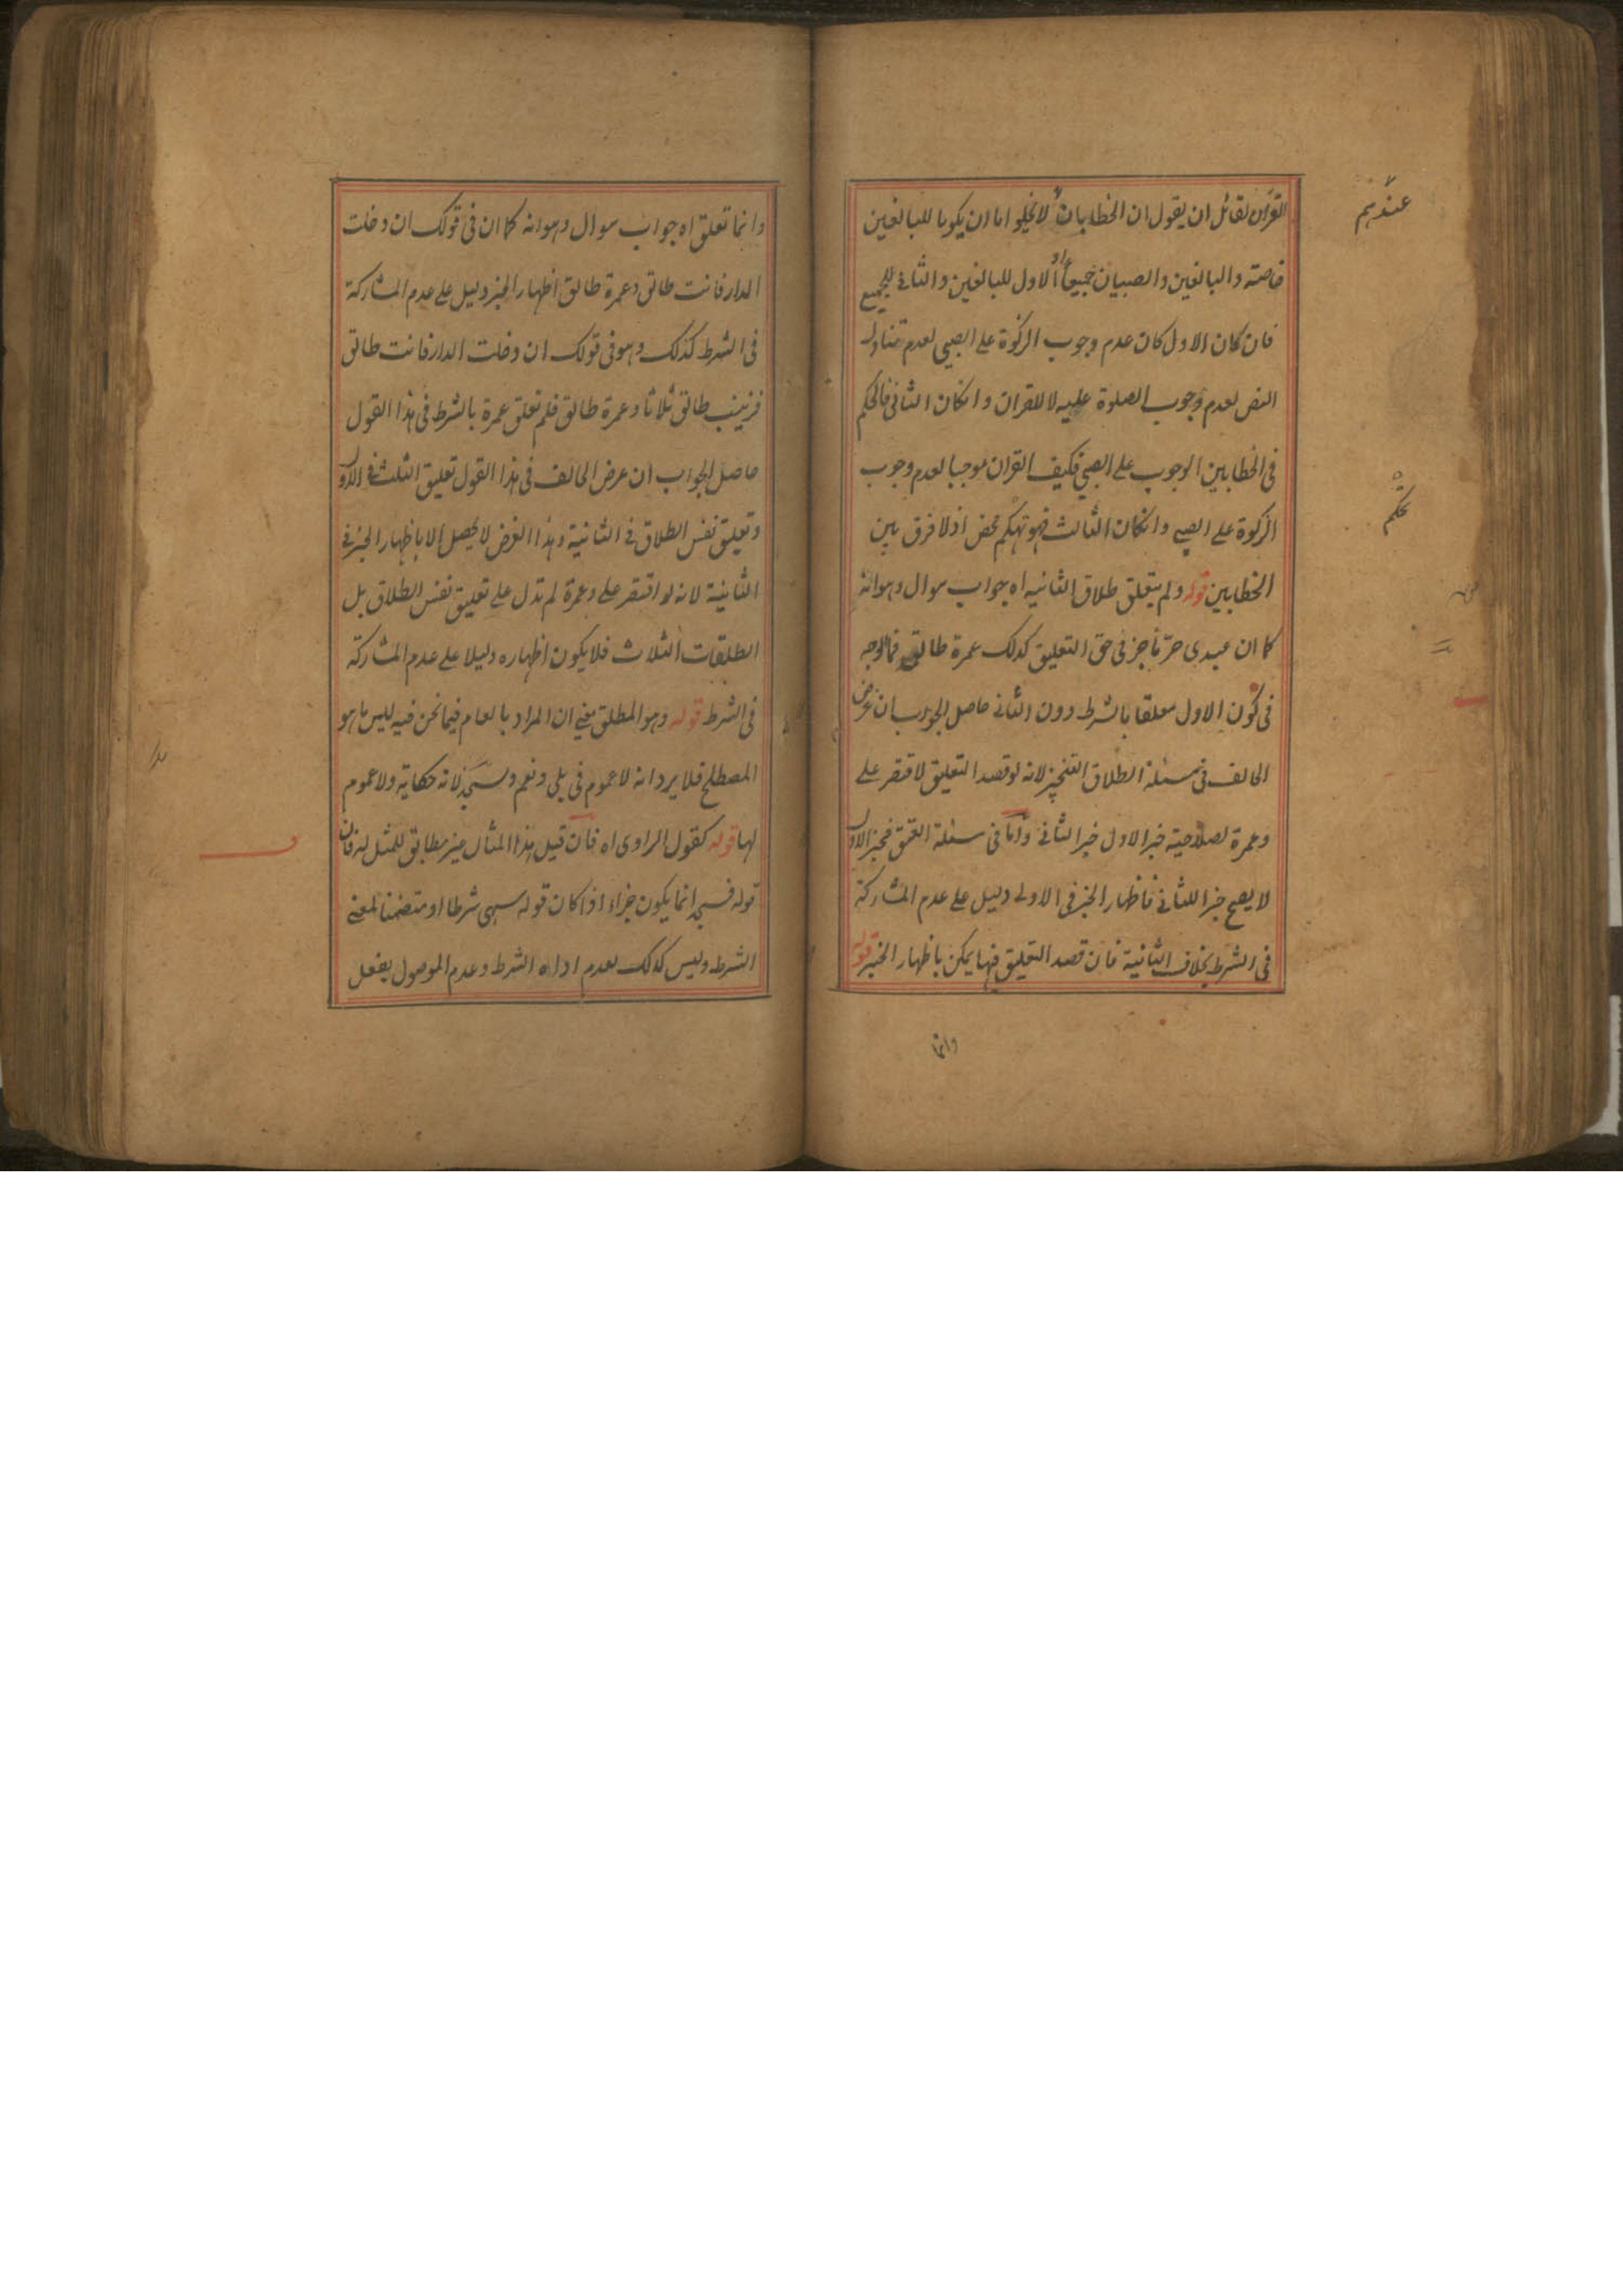 القران لقائل ان يقول ان الخطابان لا يخلوا اما ان يكونا للبالغين
خاصته والبالغين والصبيان جميعا او الاول للبالغين والثاني للجميع
فان كان الاول كان عدم وجوب الزكوة على الصبي لعدم تناول
النص لعدم وجوب الصلوة عليه لا للقران وانكان الثاني فالحكم
في الخطابين الوجوب على الصبي فكيف القران موجبا لعدم وجوب
الزكوة على الصبي وانكان الثالث فهو تهكم محض اذ لا فرق بين
الخطابين قوله ولم يتعلق طلاق الثانيه اه جواب سوال وهو انه
كما ان عبدى حر ناجز فى حق التعليق كذلك عمرة طالق فما الوجه
فى كون الاول معلقا بالشرط دون الثاني حاصل الجواب ان غرض
الحالف فى مسئلة الطلاق التنجيز لانه لو قصد التعليق لاقتصر على
وعمرة لصلاحية خبر الاول خبر الثاني واما فى مسئلة العتق فخبر الاول
لا يصح خبرا للثاني فاظهار الخبر فى الاولى دليل على عدم المشاركة
فى الشرط بخلاف الثانية فان قصد التعليق فيها يمكن باظهار الخبر قوله
وانما
عندهم
تحكم
وانما تعلق اه جواب سوال وهو انه كما ان فى قولك ان دخلت
الدار فانت طالق وعمرة طالق اظهار الخبر دليل على عدم المشاركة
فى الشرط كذلك وهو فى قولك ان دخلت الدار فانت طالق
فزينب طالق ثلاثا وعمرة طالق فلم تعلق عمرة بالشرط فى هذا القول
حاصل الجواب ان عرض الحالف فى هذا القول تعليق الثلث فى الاول
وتعليق نفس الطلاق فى الثانية وهذا الغرض لا يحصل الا باظهار الخبر فى
الثانية لانه لو اقتصر على وعمرة لم تدل على تعليق نفس الطلاق بل
الطلقات الثلاث فلا يكون اظهاره دليلا على عدم المشاركة
فى الشرط قوله وهو المطلق يعني ان المراد بالعام فيما نحن فيه ليس ما هو
المصطلح فلا يرد انه لا عموم فى بلى ونعم وسجد لانه حكاية ولا عموم
لها قوله كقول الراوى اه فان قيل هذا المثال غير مطابق للمثل له فان
قوله فسجد انما يكون جزاء اذا كان قوله سهى شرطا او متضمنا لمعنى
الشرط وليس كذلك لعدم اداه الشرط وعدم الموصول بفعل